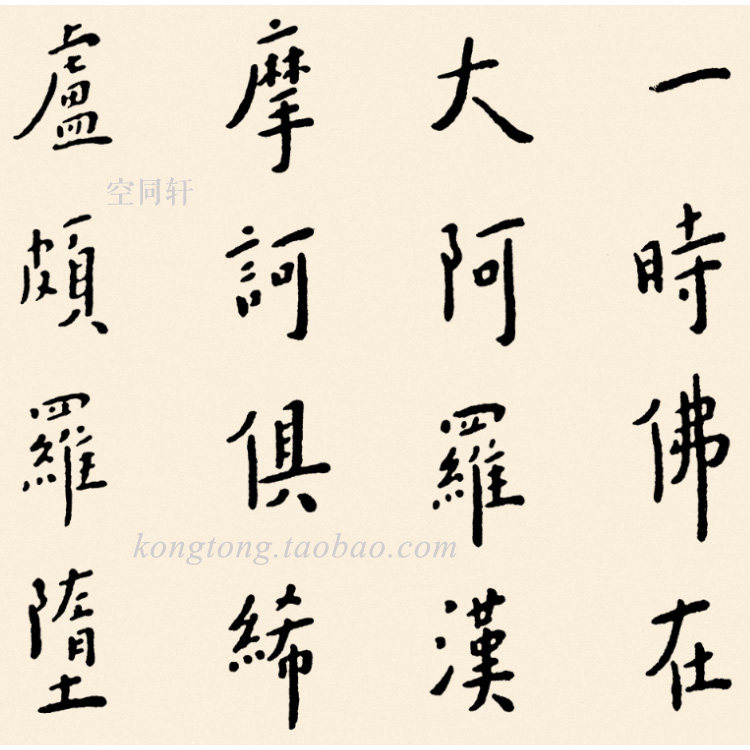 一時佛在
大阿羅漢
摩訶俱絺
盧頗羅墮
空同轩
kongtong.taobao.com